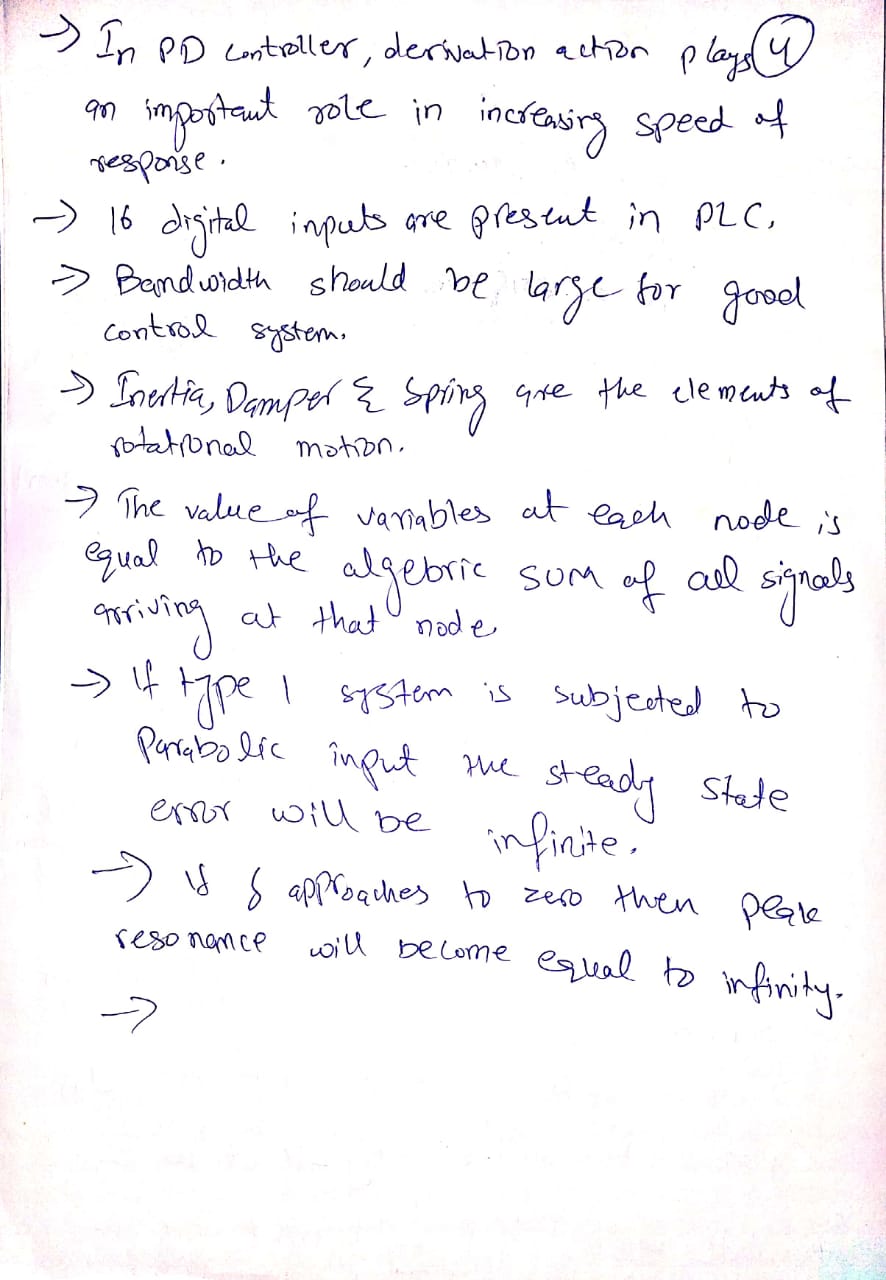 → In PD controller, derivation action plays 4
an important role in increasing speed of
response.
→ 16 digital inputs are present in PLC,
→ Bandwidth should be large for good
control system.
→ Inertia, Damper & Spring are the elements of
rotational motion.
→ The value of variables at each node is
equal to the algebric sum of all signals
arriving at that node
→ If type 1 system is subjected to
Parabolic input the steady state
error will be infinite.
→ If δ approaches to zero then peak
resonance will become equal to infinity.
→